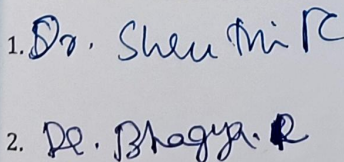 1. Dr. Shruthi K
2. Dr. Bhagya. R